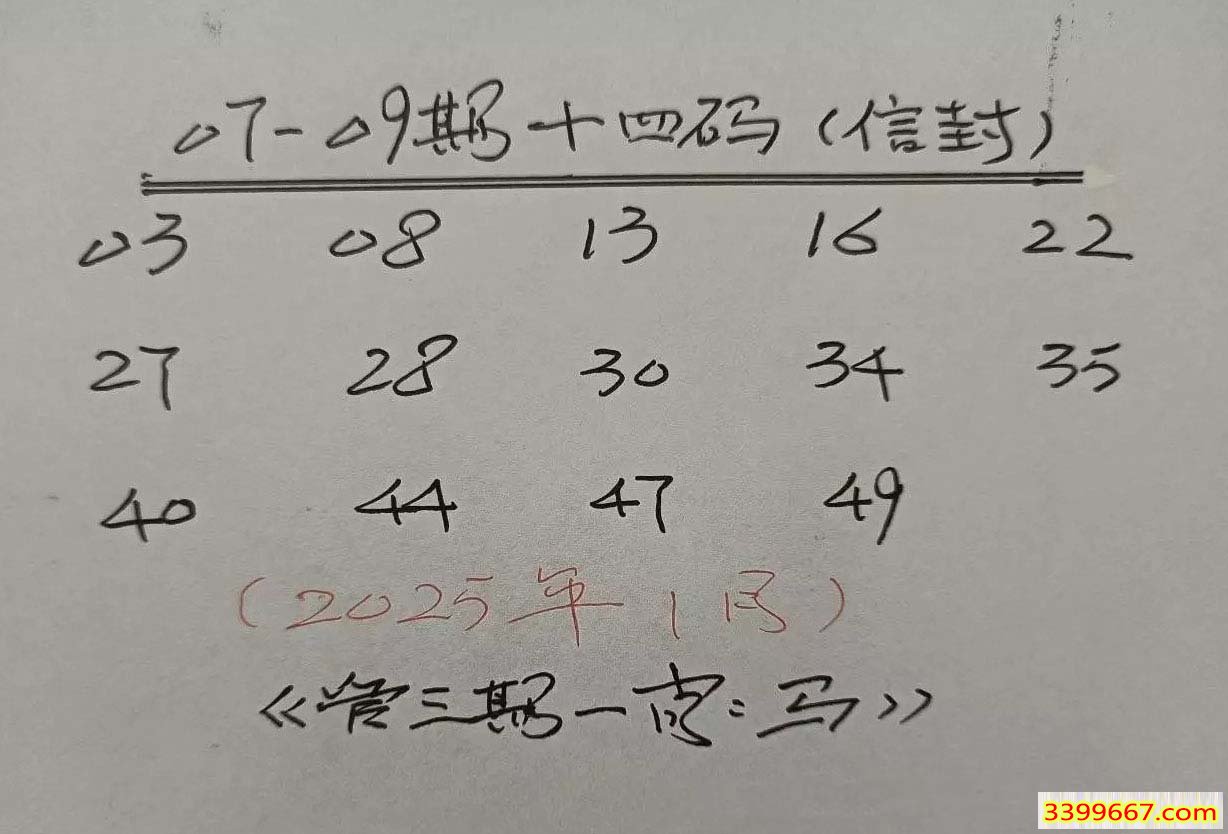 07-09期十四码(信封)
03 08 13 16 22
27 28 30 34 35
40 44 47 49
(2025年1月)
《管三期一肖:马》
3399667.com